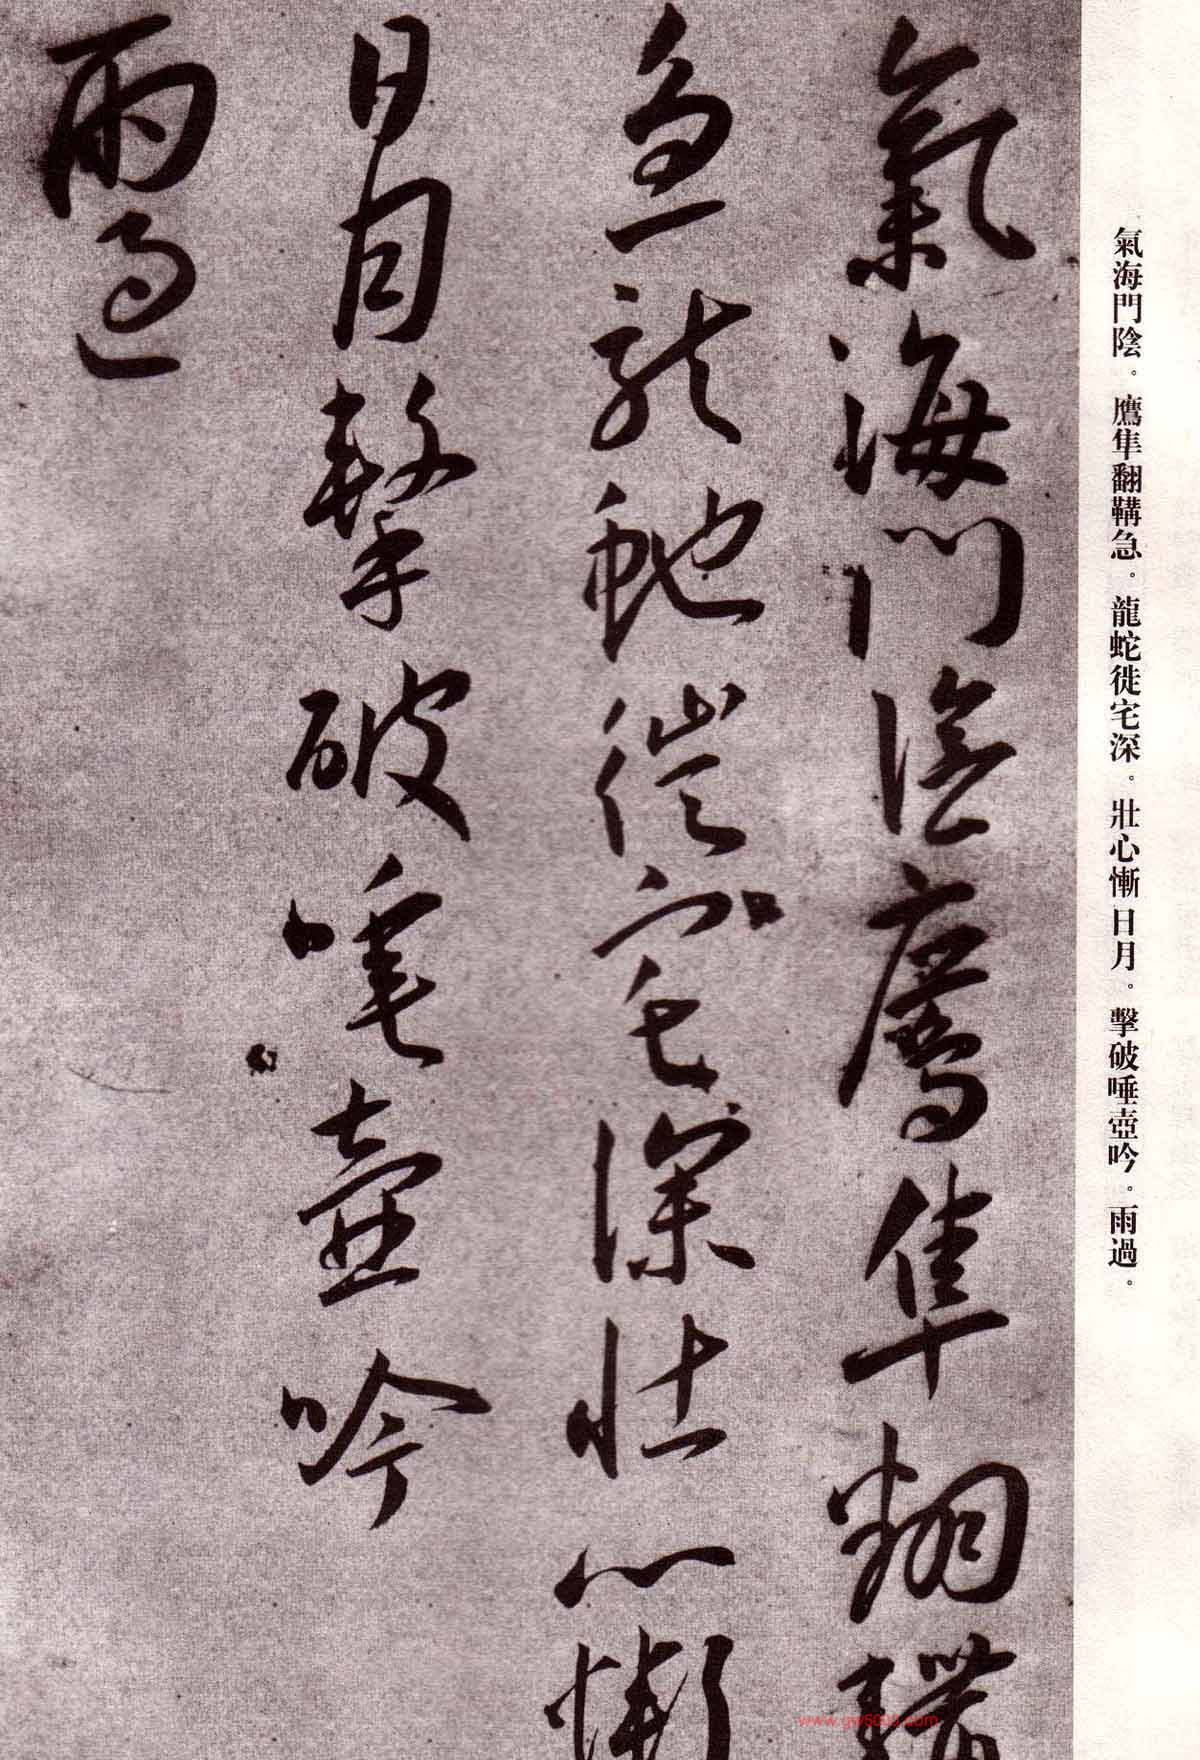 氣海門陰。鷹隼翻鞲急。龍蛇徙宅深。壯心慚日月。擊破唾壺吟。雨過。
氣海門陰鷹隼翻鞲
急龍蛇徙宅深壯心慚
日月擊破唾壺吟
雨過
www.gw5000.com